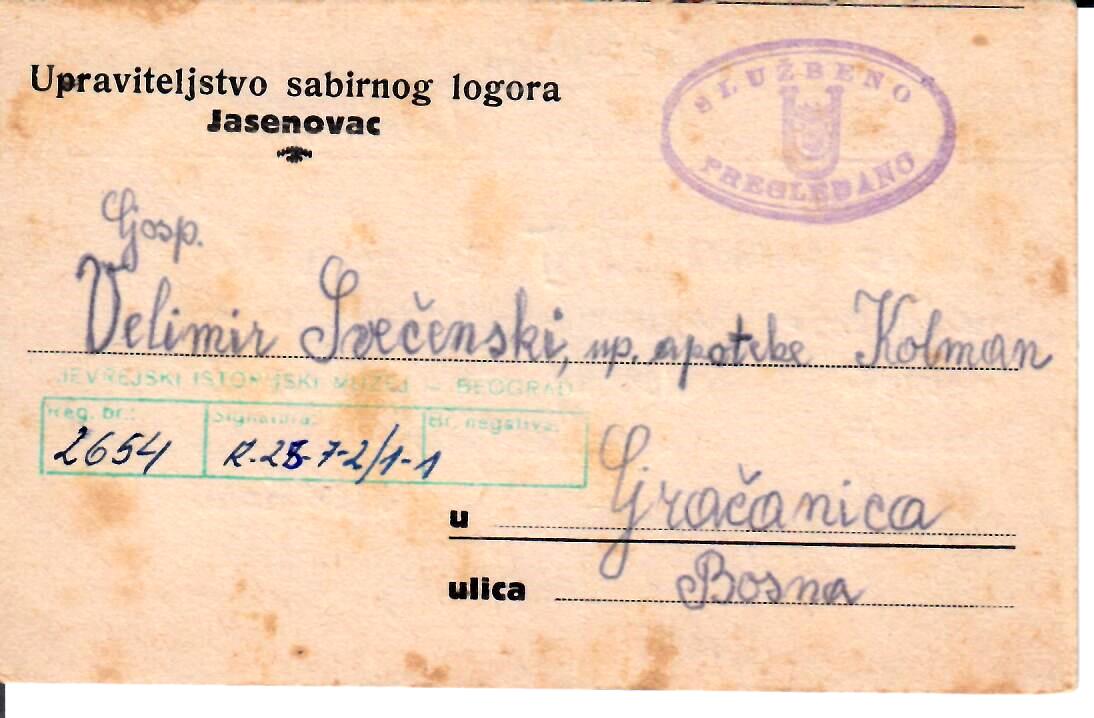 Upraviteljstvo sabirnog logora
Jasenovac
SLUŽBENO
PREGLEDANO
Gosp.
Velimir Svečenski, up. apoteke Kolman
JEVREJSKI ISTORIJSKI MUZEJ – BEOGRAD
Reg. br.: Signatura: Br. negativa:
2654 R.28-7-2/1-1
u Gračanica
ulica Bosna